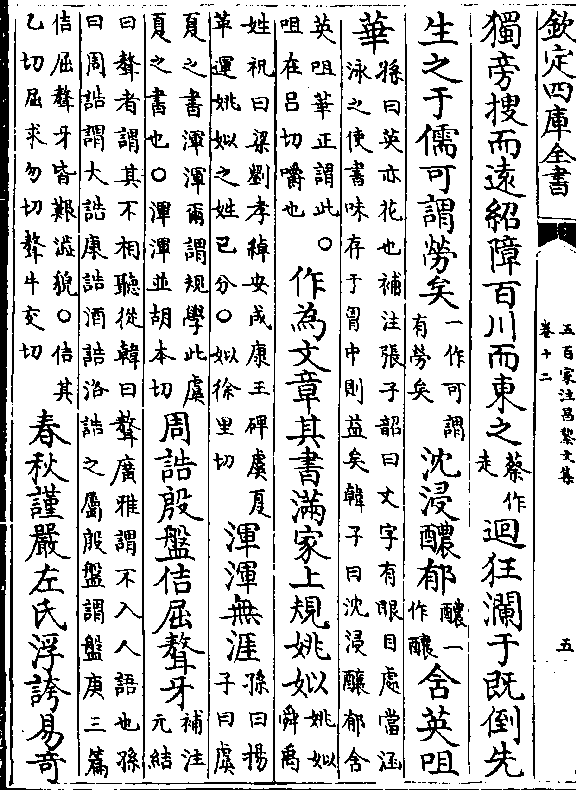 欽定四庫全書
五百家注昌黎文集
卷十二
五
獨旁搜而遠紹障百川而東之蔡作走迴狂瀾于既倒先
生之于儒可謂勞矣一作可謂有勞矣沈浸醲郁醲一作釀含英咀
華孫曰英亦花也補注張子韶曰文字有眼目處當涵泳之使書味存于胷中則益矣韓子曰沈浸釀郁含
英咀華正謂此○咀在吕切嚼也作為文章其書滿家上規姚姒姚姒舜禹
姓祝曰梁劉孝綽安成康王碑虞夏革運姚姒之姓已分○姒徐里切渾渾無涯孫曰揚子曰虞
夏之書渾渾爾謂規學此虞夏之書也○渾渾並胡本切周誥殷盤佶屈聱牙補注元結
曰聱者謂其不相聽從韓曰聱廣雅謂不入人語也孫曰周誥謂大誥康誥酒誥洛誥之屬殷盤謂盤庚三篇
佶屈聱牙皆艱澁貌○佶其乙切屈求勿切聱牛交切春秋謹嚴左氏浮誇易奇